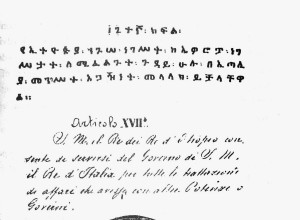 ፲፯ተኛ፡ ክፍል፡
የኢትዮጵያ፡ ንጉሠ፡ ነገሥት፡ ከኤዎሮፓ፡ ነገ
ሥታት፡ ለሚፈልጉት፡ ጉዳይ፡ ሁሉ፡ በኢጣሊ
ያ፡ መንግሥት፡ አጋዥነት፡ መላላክ፡ ይቻላቸዋ
ል።
Articolo XVII°
S. M. il Re dei Re d'Etiopia con
sente di servirsi del Governo di S. M.
il Re d'Italia per tutte le trattazioni
di affari che avesse con altre Potenze o
Governi.